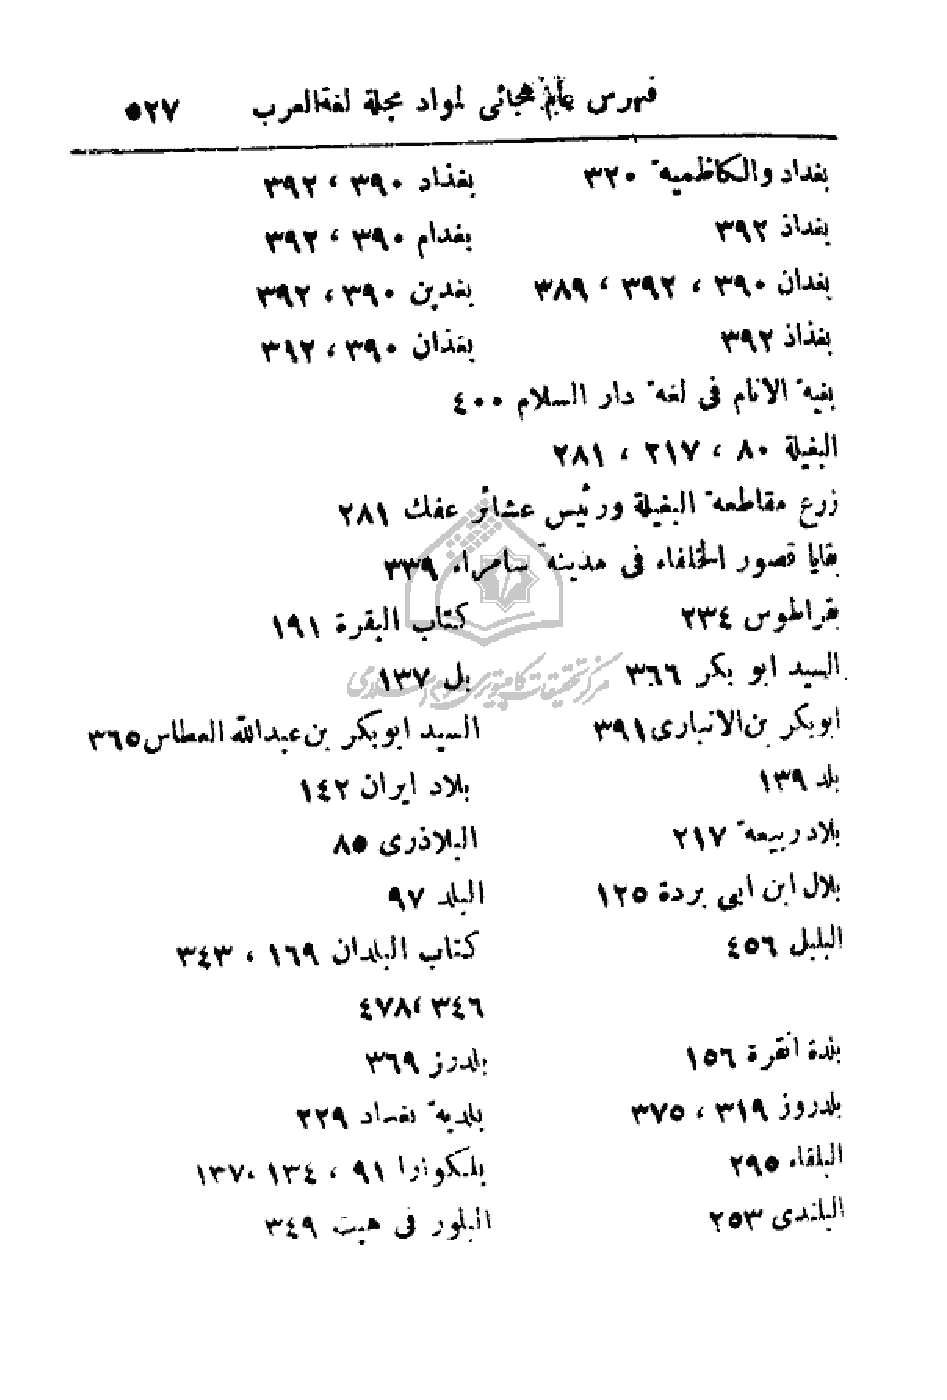 فهرس هجائى لمواد مجلة لغة العرب ٥٢٧
بغداد والكاظمية ٣٢٠
بغذاد ٣٩٠ ، ٣٩٢
بغداذ ٣٩٢
بغدام ٣٩٠ ، ٣٩٢
بغدان ٣٩٠ ، ٣٩٢ ، ٣٨٩
بغدين ٣٩٠ ، ٣٩٢
بغذاذ ٣٩٢
بغذان ٣٩٠ ، ٣٩٢
بغية الانام فى لغة دار السلام ٤٠٠
البغيلة ٨٠ ، ٢١٧ ، ٢٨١
زرع مقاطعة البغيلة ورئيس عشائر عفك ٢٨١
بقايا قصور الخلفاء فى مدينة سامراء ٣٣٩
بقراطوس ٢٣٤
كتاب البقرة ١٩١
السيد ابو بكر ٣٦٦
بل ١٣٧
ابوبكر بن الانبارى ٣٩١
السيد ابوبكر بن عبدالله العطاس ٣٦٥
بلد ١٣٩
بلاد ايران ١٤٢
بلاد ربيعة ٢١٧
البلاذرى ٨٥
بلال ابن ابي بردة ١٢٥
البلد ٩٧
البلبل ٤٥٦
كتاب البلدان ١٦٩ ، ٣٤٣
٣٤٦ ، ٤٧٨
بلدة انقرة ١٥٦
بلدرز ٣٦٩
بلدروز ٣١٩ ، ٣٧٥
بلدية بغداد ٢٢٩
البلقاء ٢٩٥
بلكوارا ٩١ ، ١٣٤ ، ١٣٧
البلندى ٢٥٣
البلور فى هيت ٣٤٩